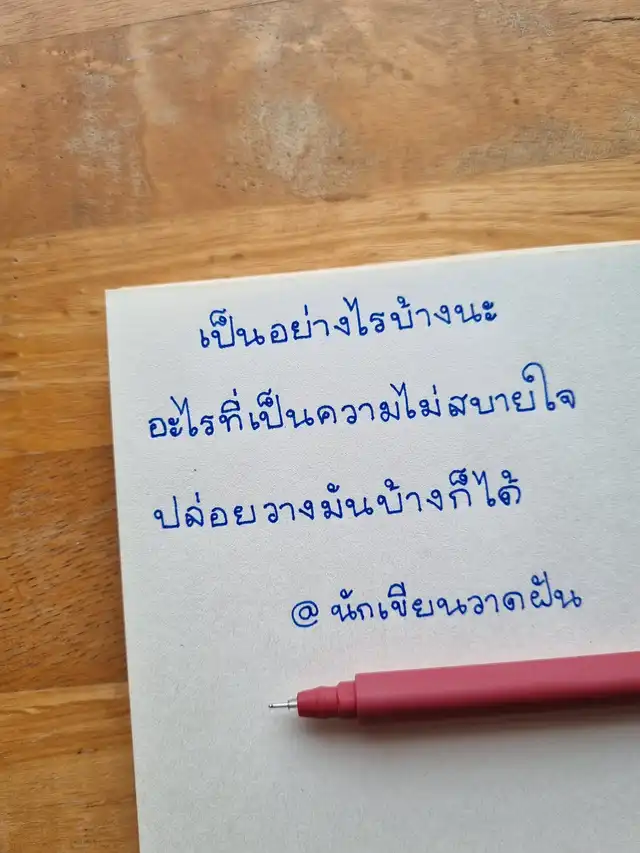 เป็นอย่างไรบ้างนะ
อะไรที่เป็นความไม่สบายใจ
ปล่อยวางมันบ้างก็ได้
@นักเขียนวาดฝัน